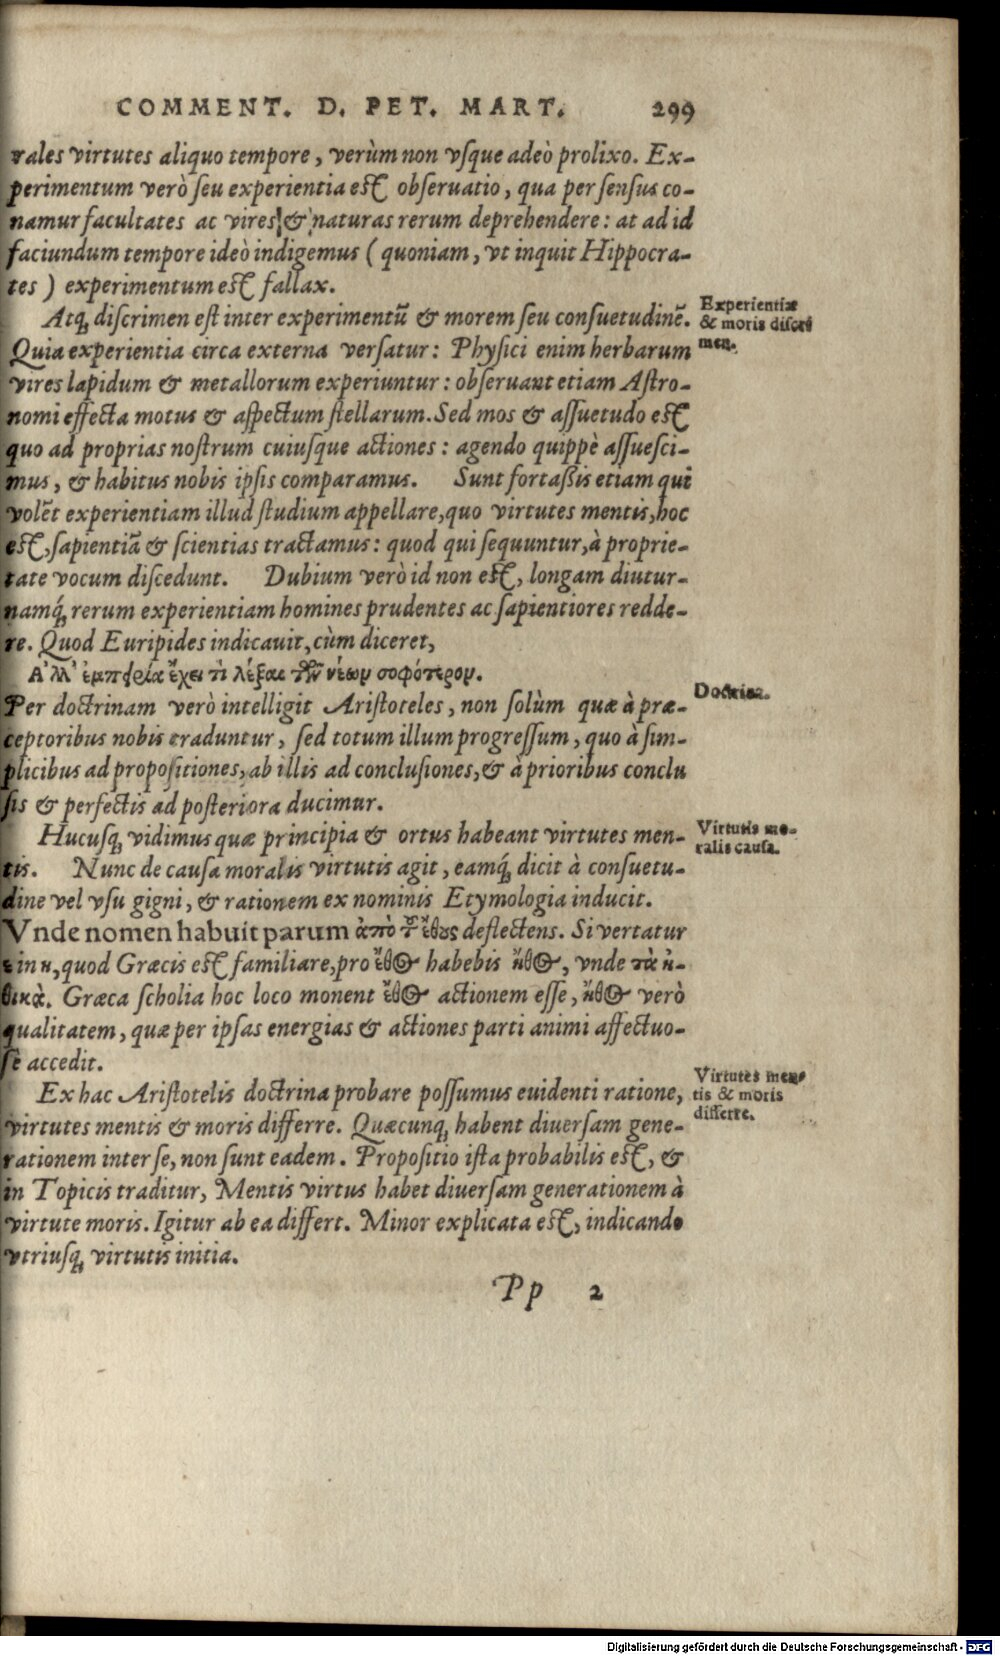 COMMENT. D. PET. MART. 299
rales virtutes aliquo tempore, verùm non vsque adeò prolixo. Ex-
perimentum verò seu experientia est obseruatio, qua per sensus co-
namur facultates ac vires, & naturas rerum deprehendere: at ad id
faciundum tempore ideò indigemus (quoniam, vt inquit Hippocra-
tes) experimentum est fallax.
Atq; discrimen est inter experimentũ & morem seu consuetudinẽ.
Experientiæ
& moris discri
men.
Quia experientia circa externa versatur: Physici enim herbarum
vires lapidum & metallorum experiuntur: obseruant etiam Astro-
nomi effecta motus & aspectum stellarum. Sed mos & assuetudo est
quo ad proprias nostrum cuiusque actiones: agendo quippè assuesci-
mus, & habitus nobis ipsis comparamus. Sunt fortaßis etiam qui
volẽt experientiam illud studium appellare, quo virtutes mentis, hoc
est, sapientiã & scientias tractamus: quod qui sequuntur, à proprie-
tate vocum discedunt. Dubium verò id non est, longam diutur-
namq́; rerum experientiam homines prudentes ac sapientiores redde-
re. Quod Euripides indicauit, cùm diceret,
Ἀλλ' ἐμπειρία ἔχει τὶ λέξαι τῶν νέων σοφότερον.
Doctrina.
Per doctrinam verò intelligit Aristoteles, non solùm quæ à præ-
ceptoribus nobis traduntur, sed totum illum progressum, quo à sim-
plicibus ad propositiones, ab illis ad conclusiones, & à prioribus conclu
sis & perfectis ad posteriora ducimur.
Hucusq; vidimus quæ principia & ortus habeant virtutes men-
Virtutis mo-
ralis causa.
tis. Nunc de causa moralis virtutis agit, eamq́; dicit à consuetu-
dine vel vsu gigni, & rationem ex nominis Etymologia inducit.
Vnde nomen habuit parum ἀπὸ τοῦ ἔθους deflectens. Si vertatur
ε in η, quod Græcis est familiare, pro ἔθος habebis ἦθος, vnde τὰ ἠ-
θικὰ. Græca scholia hoc loco monent ἔθος actionem esse, ἦθος verò
qualitatem, quæ per ipsas energias & actiones parti animi affectuo-
sæ accedit.
Ex hac Aristotelis doctrina probare possumus euidenti ratione,
Virtutes men-
tis & moris
differre.
virtutes mentis & moris differre. Quæcunq; habent diuersam gene-
rationem inter se, non sunt eadem. Propositio ista probabilis est, &
in Topicis traditur, Mentis virtus habet diuersam generationem à
virtute moris. Igitur ab ea differt. Minor explicata est, indicando
vtriusq; virtutis initia.
Pp 2
Digitalisierung gefördert durch die Deutsche Forschungsgemeinschaft - DFG